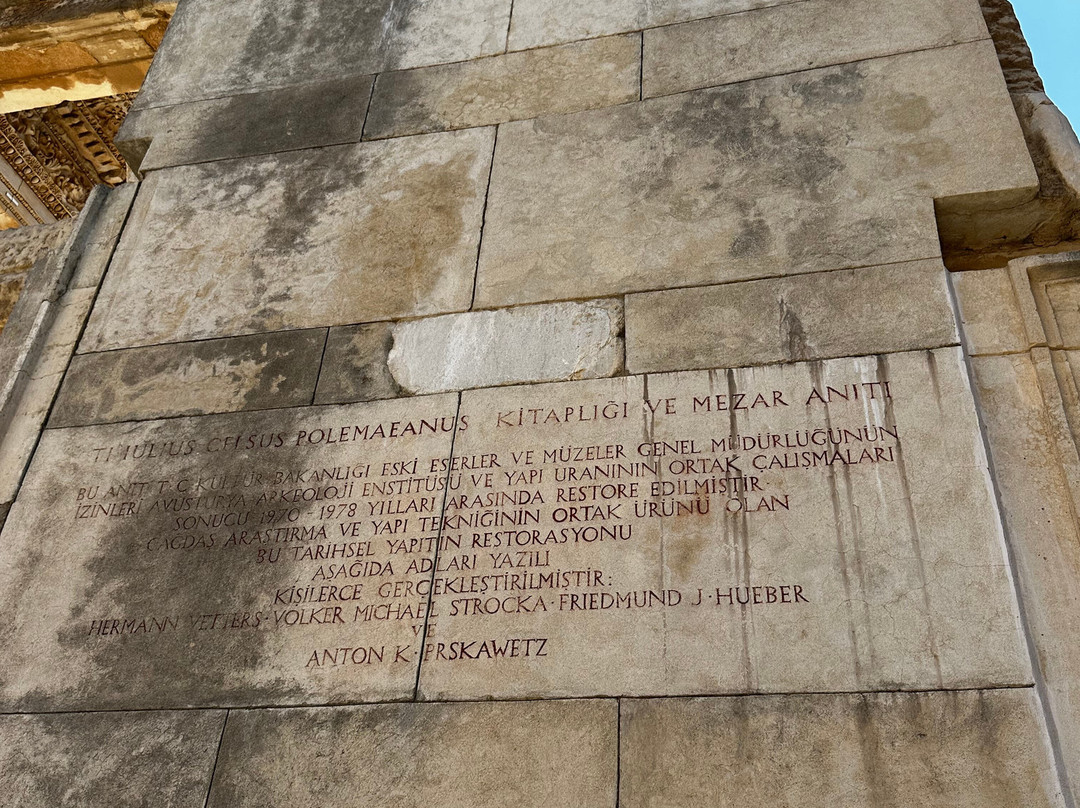 TI IULIUS CELSUS POLEMAEANUS KİTAPLIĞI VE MEZAR ANITI
BU ANIT T. C. KÜLTÜR BAKANLIĞI ESKİ ESERLER VE MÜZELER GENEL MÜDÜRLÜĞÜNÜN
İZİNLERİ AVUSTURYA ARKEOLOJİ ENSTİTÜSÜ VE YAPI URANININ ORTAK ÇALIŞMALARI
SONUCU 1970 - 1978 YILLARI ARASINDA RESTORE EDİLMİŞTİR
ÇAĞDAŞ ARAŞTIRMA VE YAPI TEKNİĞİNİN ORTAK ÜRÜNÜ OLAN
BU TARİHSEL YAPITIN RESTORASYONU
AŞAĞIDA ADLARI YAZILI
KİŞİLERCE GERÇEKLEŞTİRİLMİŞTİR:
HERMANN VETTERS · VOLKER MICHAEL STROCKA · FRIEDMUND J · HUEBER
VE
ANTON K · PRSKAWETZ